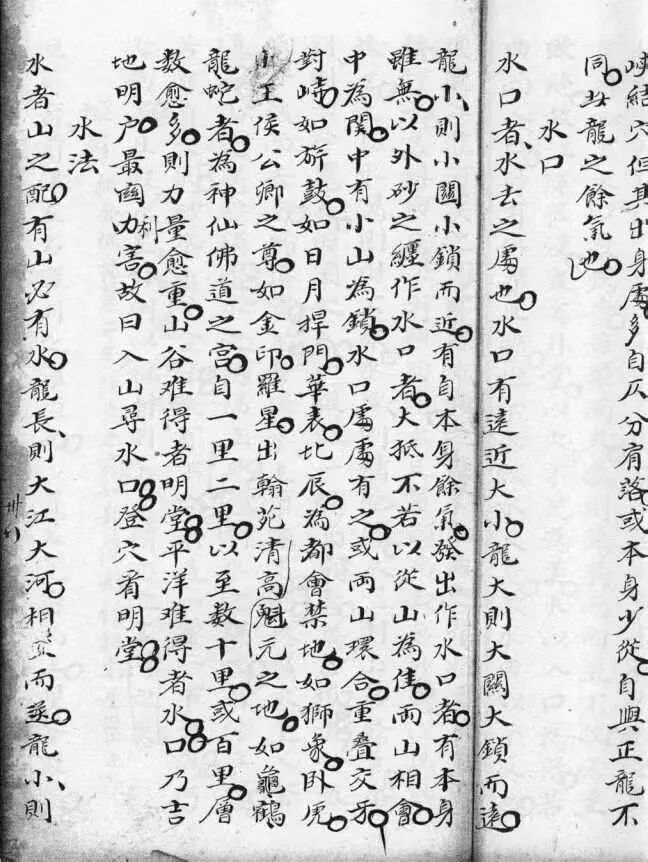 峽結穴但其出身處多自仄分肩落或本身少從自與正龍不
同此龍之餘氣也
水口
水口者水去之處也水口有遠近大小龍大則大關大鎖而遠
龍小則小關小鎖而近有自本身餘氣發出作水口者有本身
雖無以外砂之纏作水口者大抵不若以從山為佳兩山相會
中為関中有小山為鎖水口處處有之或両山環合重叠交牙
對峙如旂鼓如日月捍門華表北辰為都會禁地如獅象卧虎
出王侯公卿之尊如金印羅星出翰苑清高魁元之地如龜鶴
龍蛇者為神仙佛道之宫自一里二里以至数十里或百里層
数愈多則力量愈重山谷难得者明堂平洋难得者水口乃吉
地明户最関利害故曰入山尋水口登穴看明堂
水法
水者山之配有山必有水龍長則大江大河相而逆龍小則